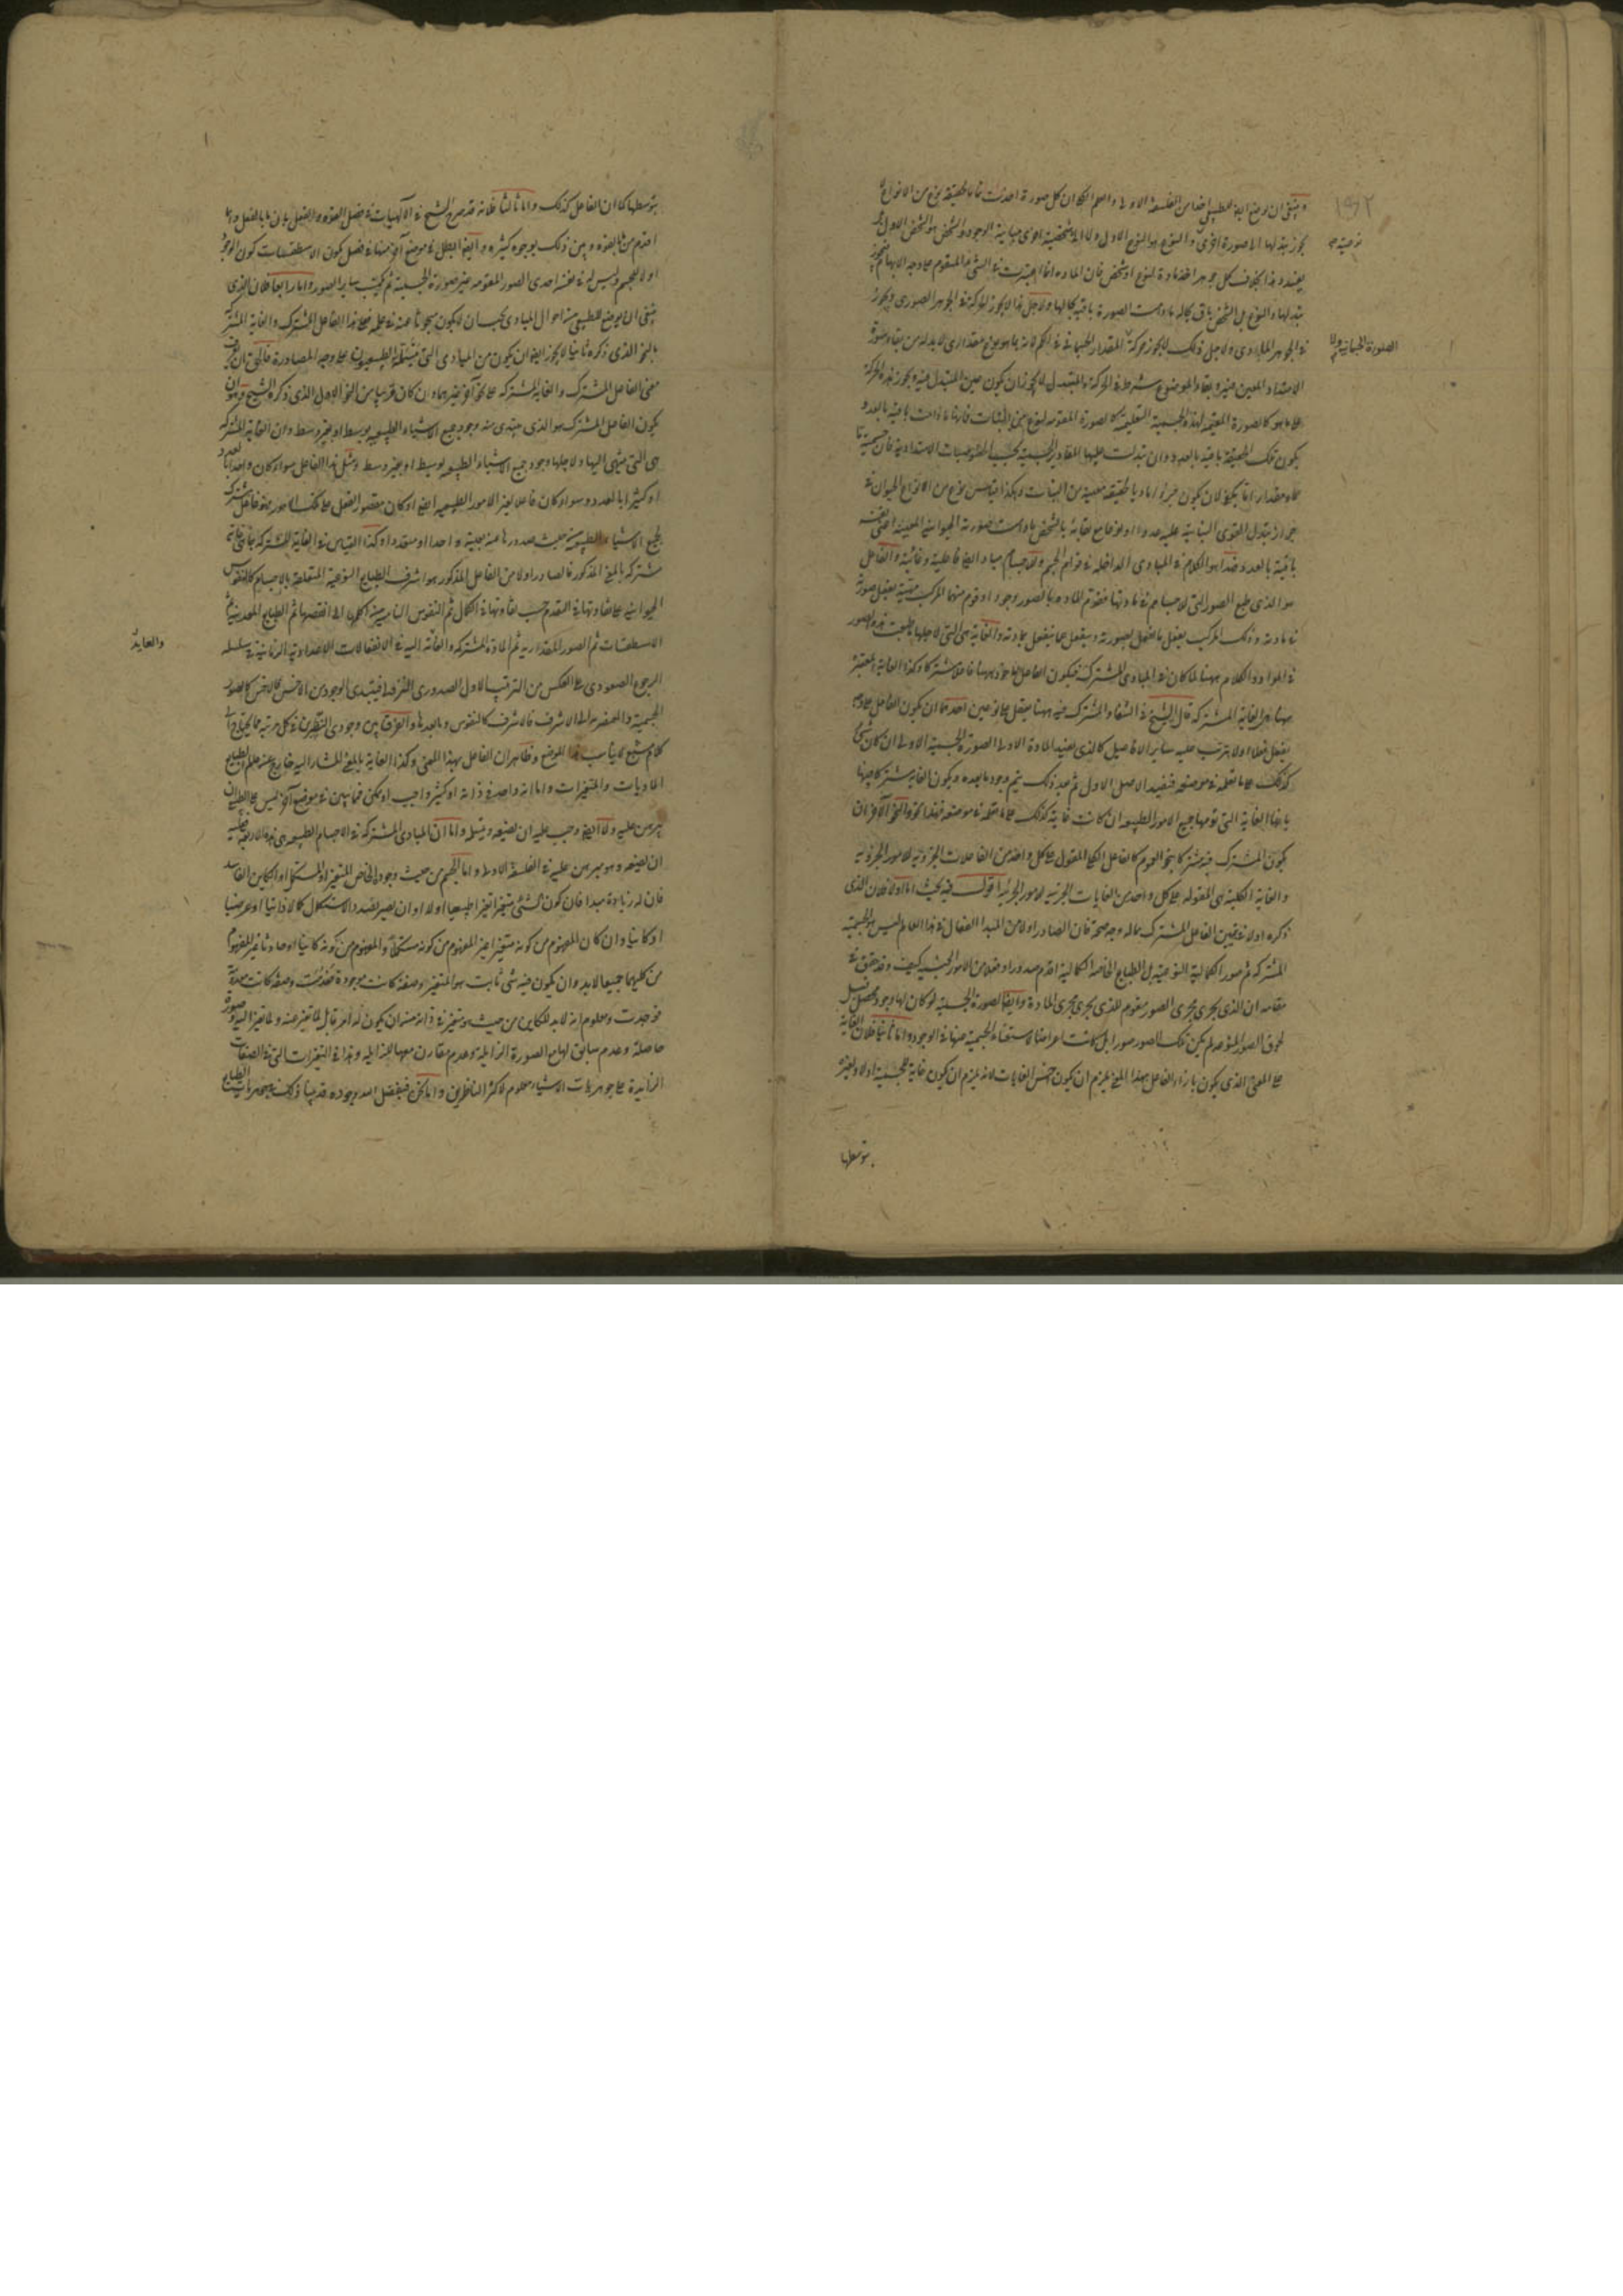 ١٥٢
وينبغى ان يوضع ايضا للطبيعى اخذا من الفلسفة الاولى واعلم انه كل صورة اخذت ما بالحقيقة نوع من الانواع لا
يجوز تبدلها الى صورة اخرى والنوع هو النوع الاول ولا الى شخصية اخرى مباينة الوجود والشخص هو الشخص الاول
نوعية
بعينه وهذا بخلاف كل جوهر اخذ مادة لنوع او شخص فان المادة انما اعتبرت فى الشئ المتقوم على وجه الابهام فيجوز
تبدلها والنوع بل الشخص باق بحاله ما دامت الصورة باقية بحالها ولاجل هذا لا يجوز الحركة فى الجوهر الصورى ويجوز
فى الجوهر المادى ولاجل ذلك لا يجوز حركة المقدار الجسمانى فى الكم لانه بما هو نوع مقدارى لا بد له من بقاء صورة
الصورة الجسمانية ولا
الامتداد المعين فيه وبقاء الموضوع شرط فى الحركة والمتبدل لا يجوز ان يكون عين المتبدل فيه ويجوز هذه الحركة
على ما هو كالصورة المقيمة لهذه الجسمية التعليمية كالصورة المقومة لنوع من النبات فانها ما دامت باقية بالعدد
يكون تلك الحقيقة باقية بالعدد وان تبدلت عليها المقادير الجسمية بحسب الخصوصيات الامتدادية فان جسمية ما
مع مقدار ما يكفى لان يكون جزءا ماديا لحقيقة معينة من النبات وهكذا قياس نوع من الانواع الحيوان فى
جواز تبدل القوى النباتية عليه عددا او نوعا مع بقائه بالشخص ما دامت صورته الحيوانية المعينة اعنى نفسه
باقية بالعدد هذا هو الكلام فى المبادى الداخلة فى قوام الجسم وللاجسام مباد ايضا فاعلية وغائية والفاعل
هو الذى طبع الصور التى للاجسام فى مادتها فقوم المادة بالصور وجودا وقوم منهما المركب يفعل بصورته
فى مادته وذلك المركب يفعل ما يفعل بصورته وينفعل بما ينفعل بمادته والغاية هى التى لاجلها طبعت هذه الصور
فى المواد والكلام ههنا لما كان فى المبادى المشتركة فيكون الفاعل الماخوذ ههنا فاعلا مشتركا وكذا الغاية المعتبرة
ههنا هى الغاية المشتركة قال الشيخ فى الشفاء والمشترك فيه ههنا يعقل على نوعين احدهما ان يكون الفاعل مشتركا
يفعل فعلا اولا يترتب عليه ساير الافاعيل كالذى يفيد المادة الاولى الصورة الجسمية الاولى ان كان شئ
كذلك على ما تعلمه فى موضعه فيفيد الاصل الاول ثم بعد ذلك يتم وجود ما بعده ويكون الغاية مشتركا فيها
بانها الغاية التى تؤمها جميع الامور الطبيعية ان كانت غاية كذلك على ما تعلمه فى موضعه فهذا نحو والنحو الآخر ان
يكون المشترك فيه مشتركا بنحو العموم كالفاعل الكلى المقول على كل واحد من الفاعلات الجزئية للامور الجزئية
والغاية الكلية هى المقولة على كل واحد من الغايات الجزئية للامور الجزئية اقول فيه بحث اما اولا فلان الذى
ذكره اولا فى تعيين الفاعل المشترك ماله وجه صحة فان الصادر اولا من المبدا الفعال فى هذا العالم ليس هو الجسمية
المشتركة ثم صور الكمالية النوعية بل الطبايع الخاصة الكمالية اقدم صدورا وفضلا من الامور الجنسية كيف وقد حقق فى
مقامه ان الذى يجرى مجرى الصور مقوم للذى يجرى مجرى المادة وايضا الصورة الجسمية لو كان لها وجود محصل قبل
لحوق الصور المنوعة لم يكن تلك الصور صورا بل كانت اعراضا لاستغناء الجسمية عنها فى الوجود واما ثانيا فلان الغاية
على المعنى الذى يكون بازاء الفاعل بهذا المعنى يلزم ان يكون اخس الغايات لانه يلزم ان يكون غاية للجسمية اولا ولغيره
بتوسطها
بتوسطها كما ان الفاعل كذلك واما ثالثا فلانه قد صرح الشيخ فى الالهيات فى فصل القوة والفعل بان ما بالفعل
اقدم من ما بالقوة وبين ذلك بوجوه كثيرة وايضا ابطل فى موضع آخر منها فى فصل كون الاسطقسات كون الوجود
اولا للجسم وليس له فى نفسه احدى الصور المقومة غير صورة الجسمية ثم يكتسب ساير الصور واما رابعا فلان الذى
ينبغى ان يوضع للطبيعى من احوال المبادى يجب ان لا يكون مبحوثا عنه فى علمه فعلى هذا الفاعل المشترك والغاية المشتركة
بالنحو الذى ذكره ثانيا لا يجوز ايضا ان يكون من المبادى التى يتسلمه الطبيعيون على وجه المصادرة فالحق ان
معنى الفاعل المشترك والغاية المشتركة على نحو آخر غيرهما وان كان قريبا من النحو الاول الذى ذكره الشيخ وهو ان
يكون الفاعل المشترك هو الذى يبتدى منه وجود جميع الاشياء الطبيعية بوسط او بغير وسط وان الغاية المشتركة
هى التى ينتهى اليها ولاجلها وجود جميع الاشياء الطبيعية بوسط او بغير وسط ومثل هذا الفاعل سواء كان واحدا بالعدد
او كثيرا بالعدد وسواء كان فاعلا لغير الامور الطبيعية ايضا او كان مقصور الفعل على تلك الامور فهو فاعل مشترك
لجميع الاشياء الطبيعية من حيث صدورها عنه بجهة واحدا او متعددا وكذا القياس فى الغاية المشتركة
مشتركة بالمعنى المذكور فالصادر اولا من الفاعل المذكور هو اشرف الطبايع النوعية المتعلقة بالاجسام كالنفوس
الحيوانية على تفاوتها فى التقدم حسب تفاوتها فى الكمال ثم النفوس النامية من اكملها الى انقصها ثم الطبايع المعدنية ثم
الاسطقسات ثم الصور المقدارية ثم المادة المشتركة والعائد اليه فى الانفعالات الاعدادية الزمانية فى سلسلة
والعايد
الرجوع الصعودى على العكس من الترتيب الاول الصدورى النزولى فيبتدى الوجود من الاخس فالاخس كالصور
الجسمية والعنصرية الى الاشرف فالاشرف كالنفوس وما بعدها والفرق بين وجودى النظيرين فى كل مرتبة مما يحتاج الى
كلام مشبع لا يناسب هذا الموضع وظاهر ان الفاعل بهذا المعنى وكذا الغاية بالمعنى المشار اليه خارج عن علم الطبايع
الماديات والمتغيرات واما انه واحد فى ذاته او كثير واجب او ممكن فمما يبين فى موضع آخر ليس على الطبيعى ان
يبرهن عليه ولا ايضا وجب عليه ان يضعه ويتسلمه واما ان المبادى المشتركة فى الاجسام الطبيعية هى هذه الاربعة فعليه
ان يضعه وهو مبرهن عليه فى الفلسفة الاولى واما الجسم من حيث وجود الخاص المتغير او المستكمل او الكاين الفاسد
فان له زيادة مبدا فان كون الشئ متغيرا تغيرا طبيعيا اولا او ان يصير بصدد الاستكمال كمالا ذاتيا او عرضيا
او كاينا وان كان المفهوم من كونه متغيرا غير المفهوم من كونه مستكملا والمفهوم من كونه كاينا او حادثا غير المفهوم
من كليهما جميعا لا بد وان يكون فيه شئ ثابت هو المتغير وصفة كانت موجودة فعدمت وصفة كانت معدومة
فوجدت ومعلوم انه لا بد للكاين من حيث هو متغير فى ذاته من ان يكون له امر قابل لما تغير عنه ولما تغير اليه وصورة
حاصلة وعدم سابق لها مع الصورة الزايلة وعدم مقارن معها للزايلة وهذا فى التغيرات التى فى الصفات
الزايدة على جوهريات الاشياء معلوم لاكثر الناظرين واما نحن فبفضل الله وجوده قد بينا ذلك فى جوهريات الطبايع